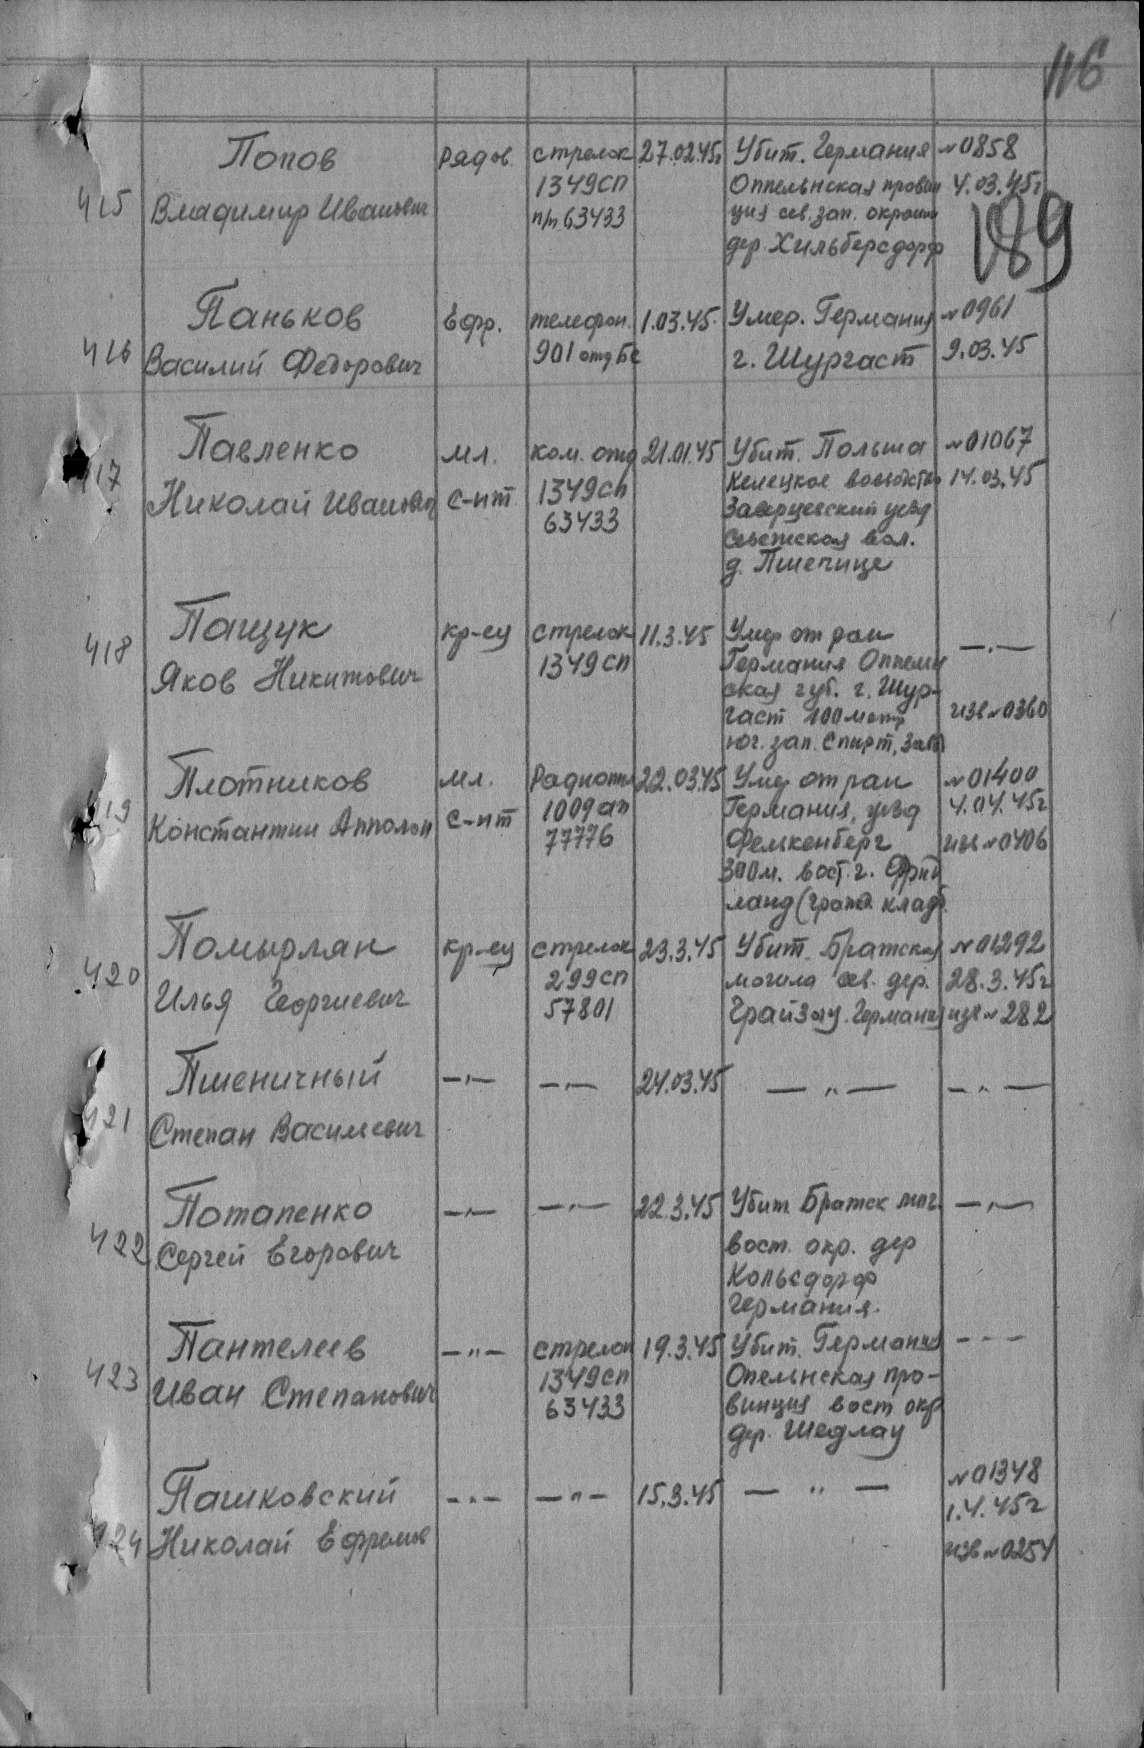 116
Попов рядов. стрелок 27.02.45г Убит. Германия №0858
1349сп Оппельнская провин 4.03.45г
415 Владимир Иванович п/п 63433 ция сев. зап. окраин
дер. Хильберсдорф
189
Паньков Ефр. телефон. 1.03.45. Умер. Германия №0961
416 Василий Федорович 901 отд бс г. Шургаст 9.03.45
Павленко мл. ком. отд 21.01.45 Убит. Польша №01067
417 Николай Иванович с-нт 1349сп Келецкое воеводство 14.03.45
63433 Заверцевский уезд
вол.
д. Пшепице
Пащук кр-ец стрелок 11.3.45 Умер от ран —.—
418 Яков Никитович 1349сп Германия Оппельн
ская губ. г. Шур-
гаст 100 метр изв №0360
юг. зап. Спирт. зав
Плотников мл. Радиотел 22.03.45 Умер от ран №01400
419 Константин Апполон с-нт 1009ап Германия, уезд 4.04.45г
77776 Фелкенберг изв №0406
300м. вост. г. Фрид
ланд (гражд кладб.
Помырлян кр-ец стрелок 23.3.45 Убит. Братская №01292
420 299сп могила сев. дер. 28.3.45г
Илья Георгиевич 57801 Грайзау. Германия изв № 282
Пшеничный —"— —"— 24.03.45 — " — — " —
421 Степан Васильевич
Потапенко —"— —"— 22.3.45 Убит Братск мог. —"—
422 Сергей Егорович вост. окр. дер
Кольсдорф
Германия.
Пантелеев —"— стрелок 19.3.45 Убит. Германия - - -
423 Иван Степанович 1349сп Опельнская про-
63433 винция вост окр
дер. Шедлау
Пашковский —"— —"— 15.3.45 — " — №01348
1.4.45г
424 Николай Ефремов изв №0254